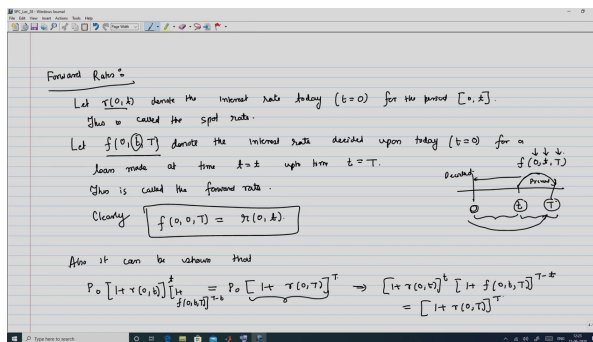 SPC_Lec_28 - Windows Journal
File Edit View Insert Actions Tools Help
Page Width
Forward Rates :
Let r(0,t) denote the interest rate today (t=0) for the period [0,t].
This is called the spot rate.
Let f(0,t,T) denote the interest rate decided upon today (t=0) for a
loan made at time t=t upto time t=T.
This is called the forward rate.
f(0,t,T)
Decided
Period
0 t T
Clearly f(0,0,T) = r(0,t).
Also it can be shown that
P₀ [1+r(0,t)]^t [1+f(0,t,T)]^{T-t} = P₀ [1+r(0,T)]^T → [1+r(0,t)]^t [1+f(0,t,T)]^{T-t}
= [1+r(0,T)]^T
Type here to search
ENG